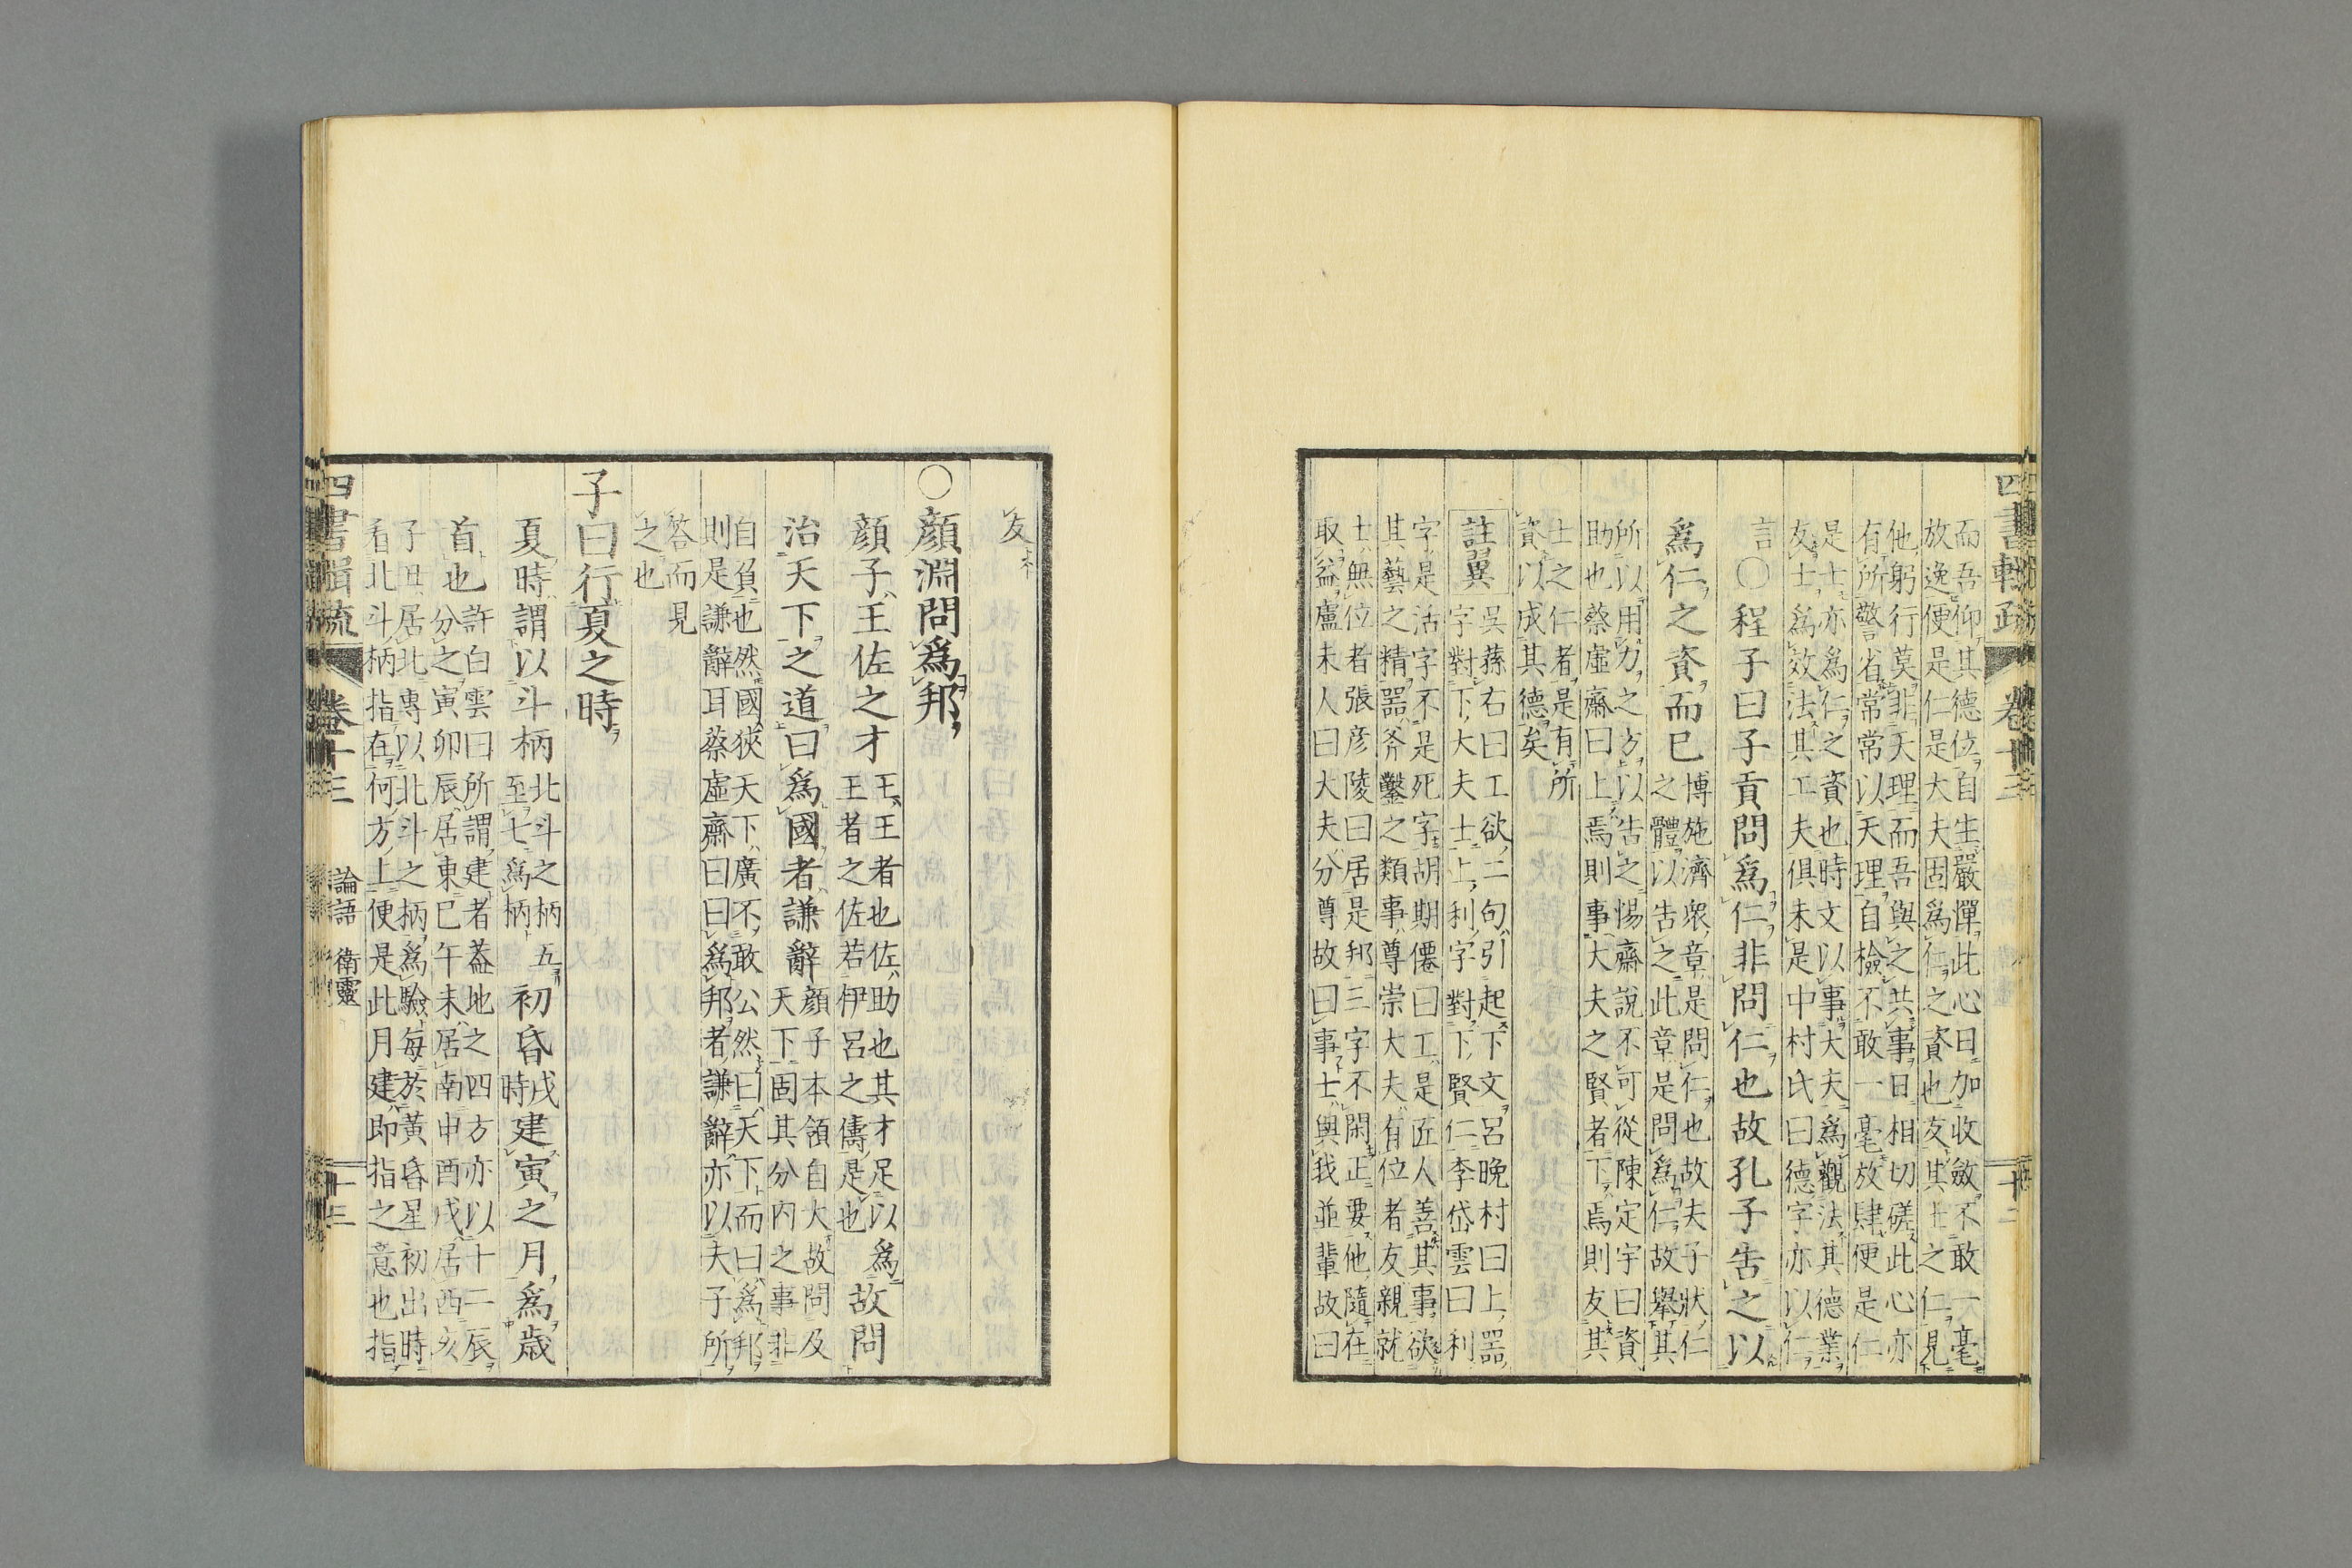 四書輯疏 卷十三 十二
而吾仰其德位自生嚴憚此心日加收斂不敢一毫
放逸便是仁是大夫固為仁之資也友其士之仁見
他躬行莫非天理而吾與之共事日相切磋此心亦
有所警省常常以天理自檢不敢一毫放肆便是仁
是士亦為仁之資也時文以事大夫為觀法其德業
友士為效法其工夫俱未是中村氏曰德字亦以仁
言
○程子曰子貢問爲仁非問仁也故孔子告之以
爲仁之資而已
博施濟衆章是問仁也故夫子狀仁
之體以告之此章是問爲仁故舉其
所以用力之方以告之惕齋說不可從陳定宇曰資
助也蔡虛齋曰上焉則事大夫之賢者下焉則友其
士之仁者是有所
資以成其德矣
註翼
吳蓀右曰工欲二句引起下文呂晚村曰上器
字對下大夫士上利字對下賢仁李岱雲曰利
字是活字不是死字胡期僊曰工是匠人善其事欲
其藝之精器斧鑿之類事尊崇大夫有位者友親就
士無位者張彥陵曰居是邦三字不閑正要他隨在
取益盧未人曰大夫分尊故曰事士與我並輩故曰
友
○顏淵問爲邦
顏子王佐之才
王王者也佐助也其才足以爲
王者之佐若伊呂之儔是也
故問
治天下之道曰爲國者謙辭
顏子本領自大故問及
天下固其分内之事非
自負也然國狹天下廣不敢公然曰天下而曰爲邦
則是謙辭耳蔡虛齋曰曰爲邦者謙辭亦以夫子所
答而見
之也
子曰行夏之時
夏時謂以斗柄
北斗之柄五
至七爲柄
初昏
戌
時
建寅之月爲歲
首也
許白雲曰所謂建者蓋地之四方亦以十二辰
分之寅卯辰居東巳午未居南申酉戌居西亥
子丑居北專以北斗之柄爲驗每於黃昏星初出時
看北斗柄指在何方上便是此月建即指之意也指
四書輯疏 卷十三 論語 衛靈 十三